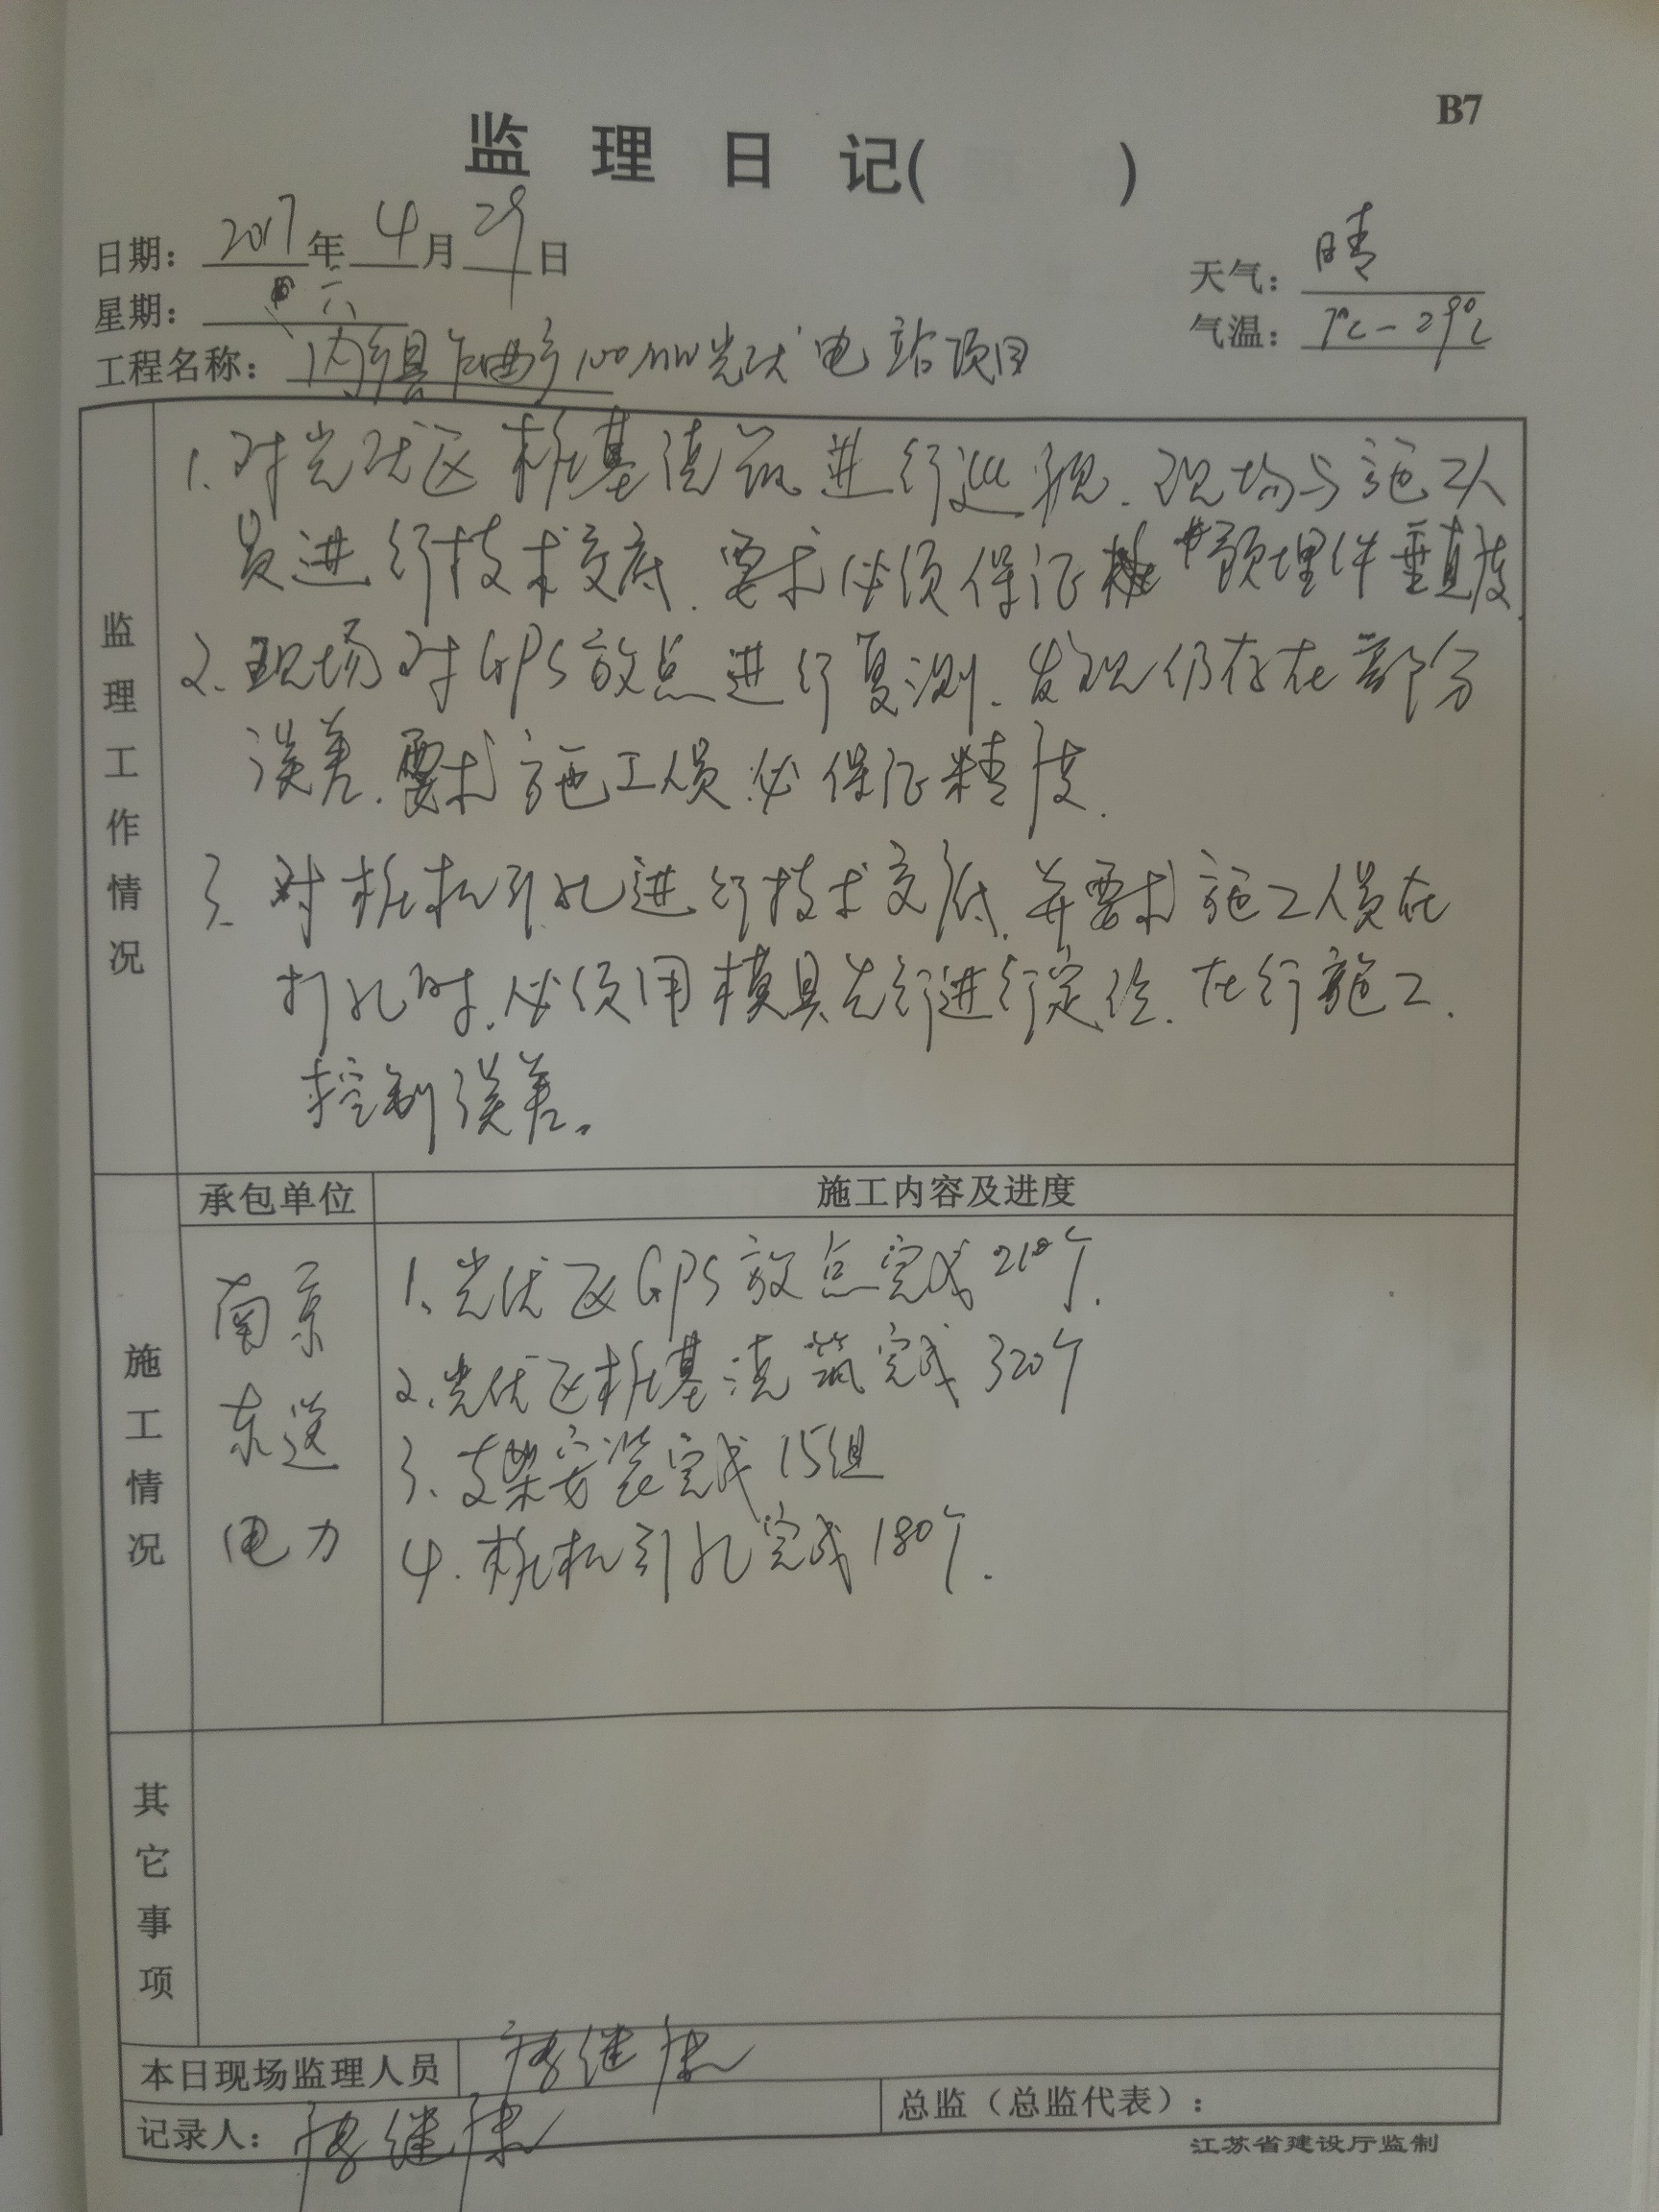 B7
监理日记( )
日期：2017年4月29日
天气：晴
星期：六
气温：7℃-29℃
工程名称：内乡县乍曲乡100MW光伏电站项目
监理工作情况
1.对光伏区桩基浇筑进行巡视.现场与施工人
员进行技术交底.要求必须保证预埋件垂直度.
2.现场对GPS放点进行复测.发现仍存在部分
误差.要求施工人员必保证精度.
3.对桩机引孔进行技术交底.并要求施工人员在
打孔时.必须用模具先行进行定位.在行施工.
控制误差。
承包单位
施工内容及进度
施工情况
南京
东送
电力
1、光伏区GPS放点完成210个.
2、光伏区桩基浇筑完成320个
3、支架安装完成15组
4.桩机引孔完成180个.
其它事项
本日现场监理人员 继康
记录人：继康
总监（总监代表）：
江苏省建设厅监制